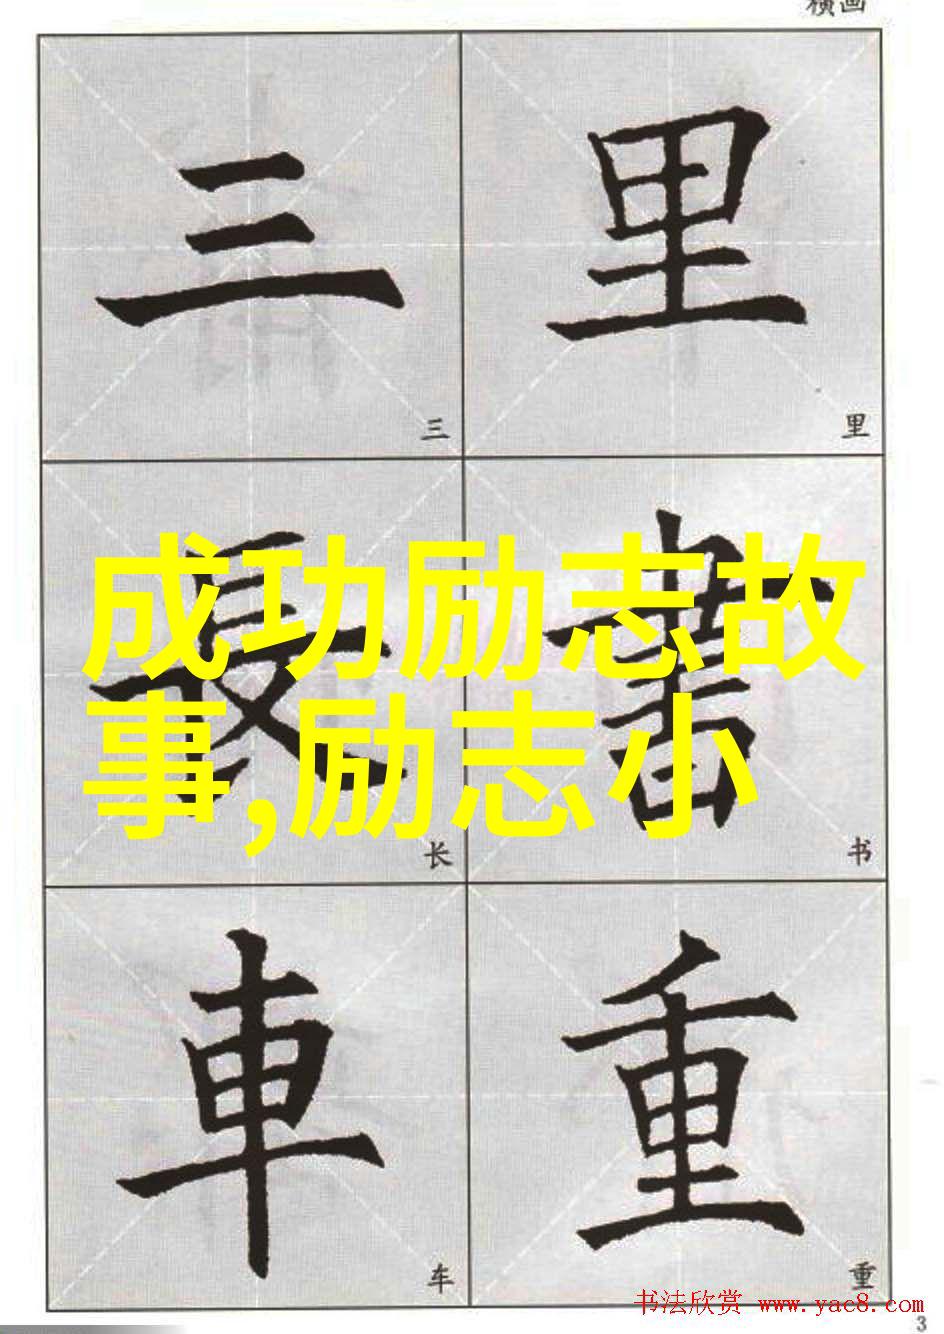 横画
三 里
三 里
長 書
成功励志故
事,励志小
长 书
車 重
车 重
书法欣赏 www.yac8.com
3